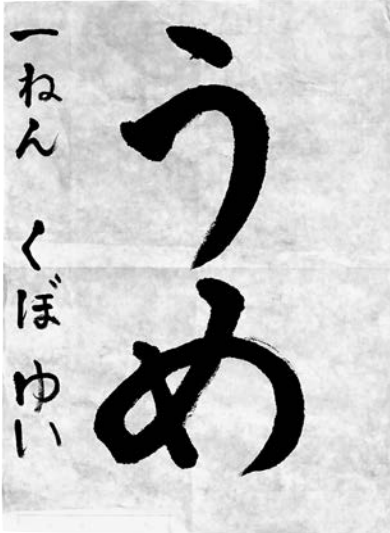 うめ
一ねん くぼ ゆい